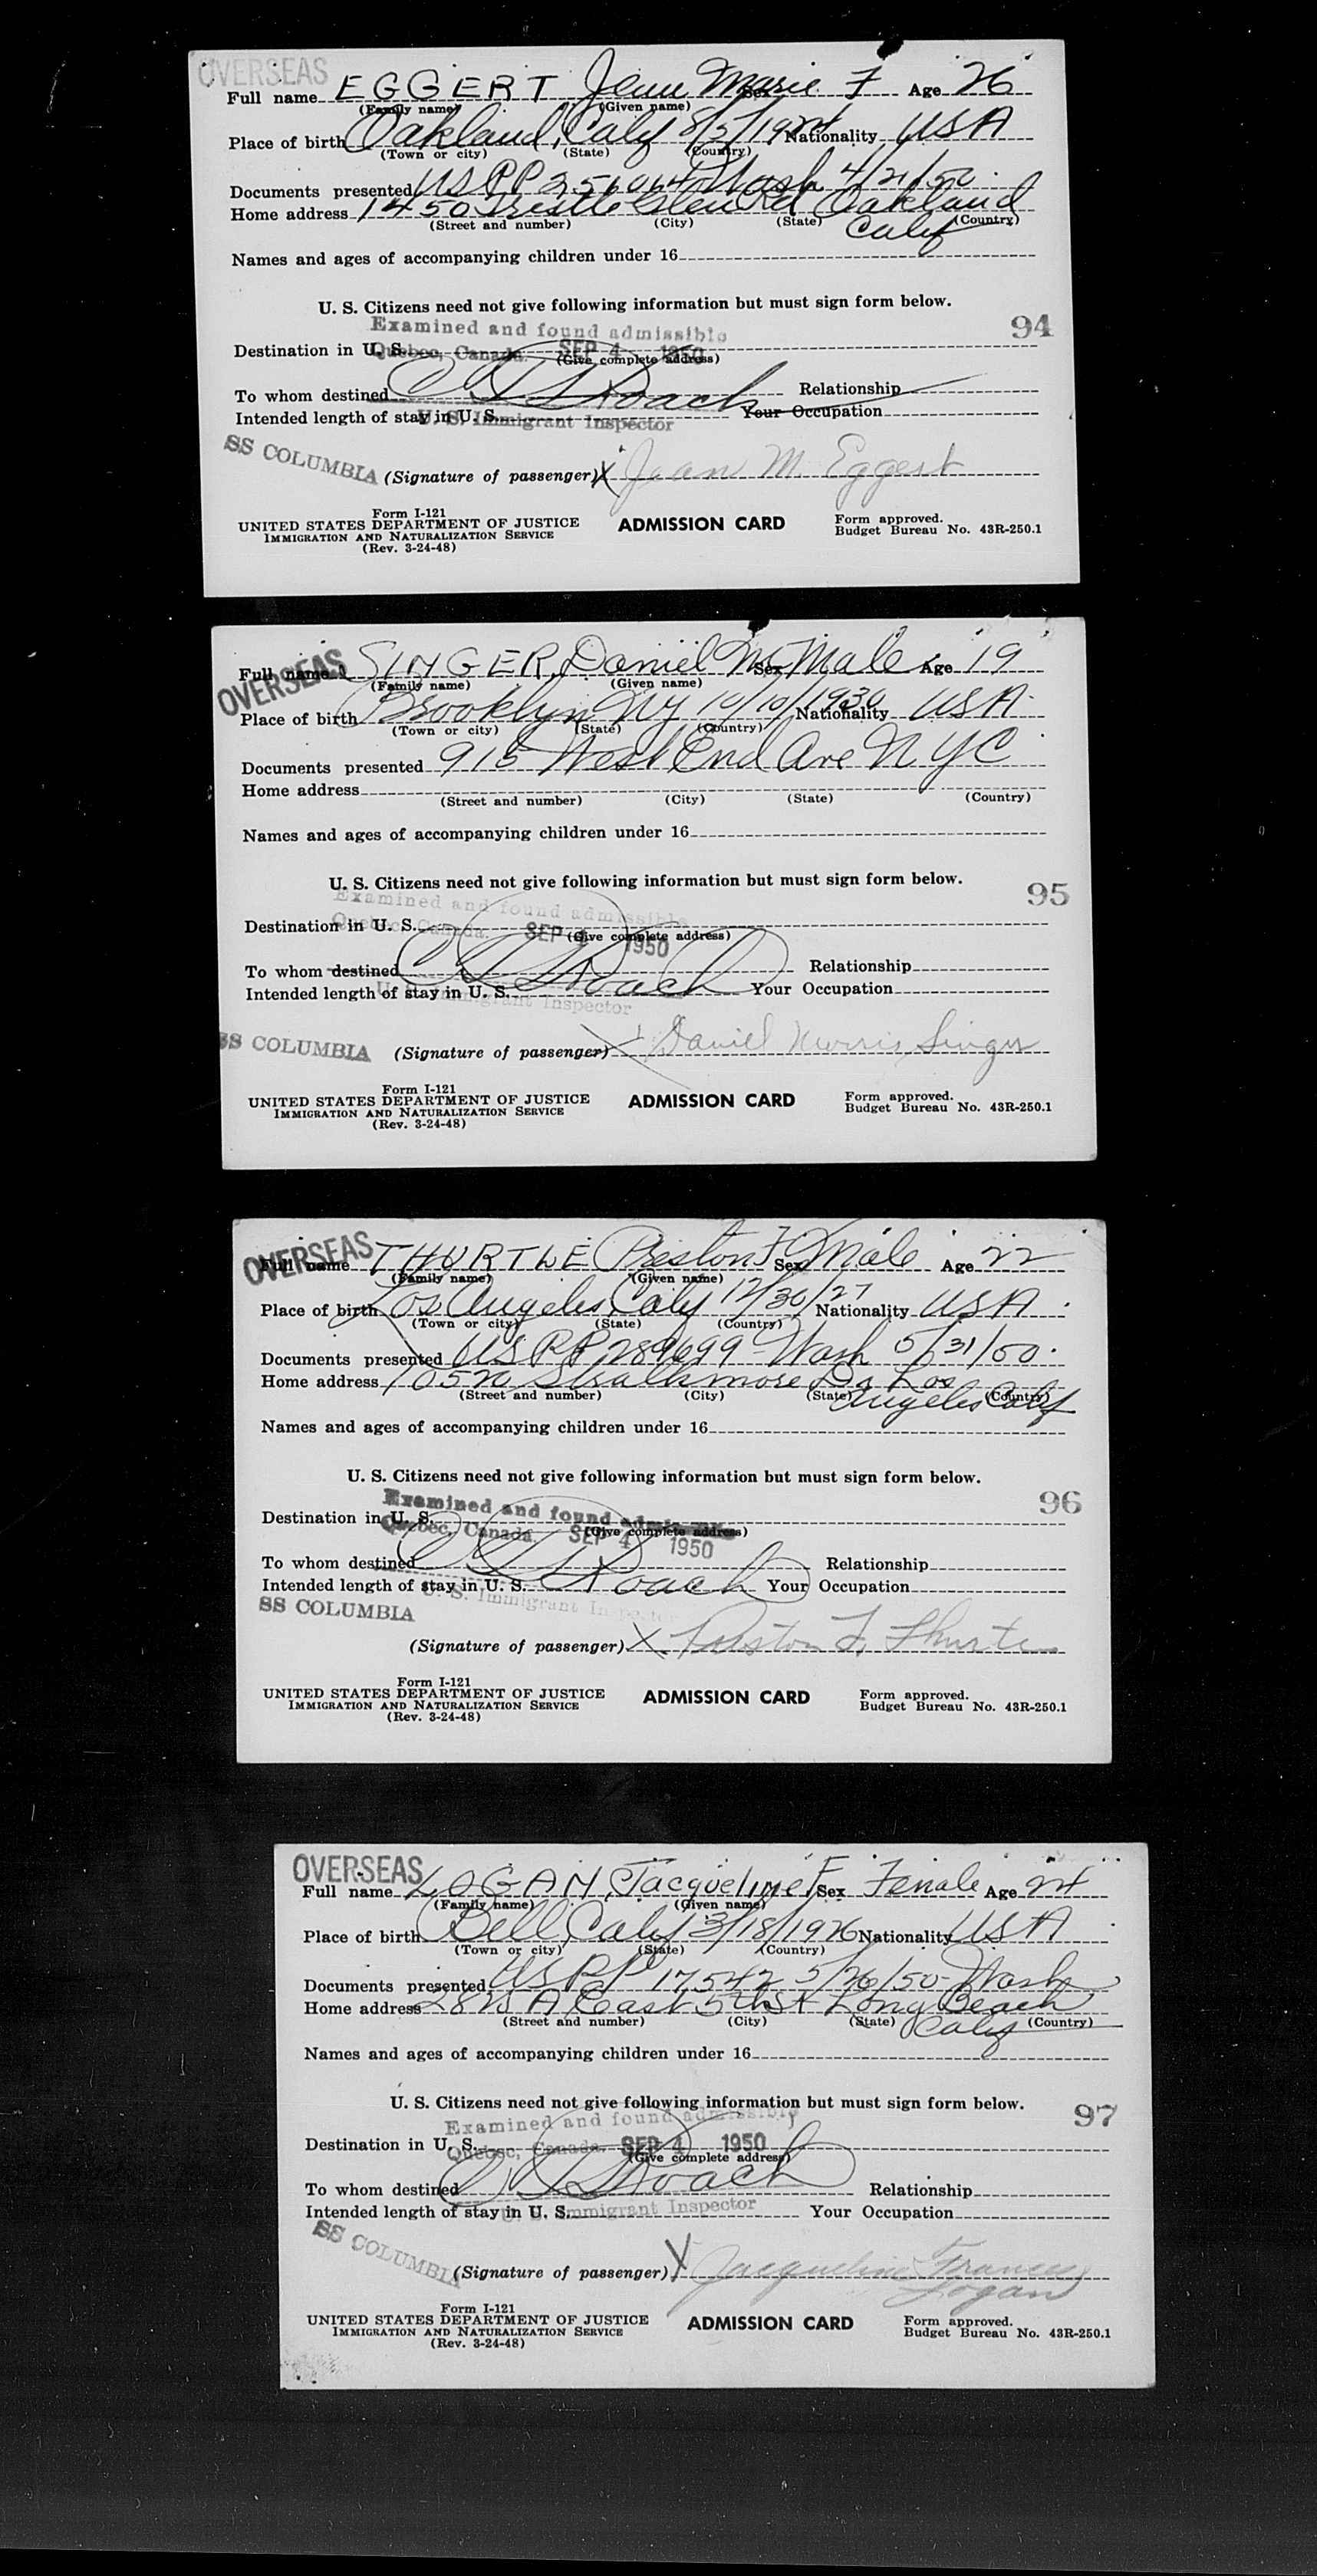 OVERSEAS
Full name EGGERT Jean Marie Sex F Age 26
(Family name) (Given name)
Place of birth Oakland, Calif 8/5/1924 Nationality USA
(Town or city) (State) (Country)
Documents presented USPP Wash 4/21/50
Home address 1450 Trestle Glen Rd Oakland
(Street and number) (City) (State) (Country)
Calif
Names and ages of accompanying children under 16
U. S. Citizens need not give following information but must sign form below.
94
Examined and found admissible
Destination in U. S.
Quebec, Canada. SEP 4 1950
(Give complete address)
To whom destined Roach Relationship
Intended length of stay in U. S. Your Occupation
U. S. Immigrant Inspector
SS COLUMBIA
(Signature of passenger) X Jean M. Eggert
Form I-121
UNITED STATES DEPARTMENT OF JUSTICE ADMISSION CARD Form approved.
IMMIGRATION AND NATURALIZATION SERVICE Budget Bureau No. 43R-250.1
(Rev. 3-24-48)
OVERSEAS
Full name SINGER, Daniel M Sex Male Age 19
(Family name) (Given name)
Place of birth Brooklyn NY 10/10/1930 Nationality USA
(Town or city) (State) (Country)
Documents presented 915 West End Ave NYC
Home address
(Street and number) (City) (State) (Country)
Names and ages of accompanying children under 16
U. S. Citizens need not give following information but must sign form below.
95
Examined and found admissible
Destination in U. S.
Quebec, Canada. SEP 4 1950
(Give complete address)
To whom destined Roach Relationship
Intended length of stay in U. S. Your Occupation
U. S. Immigrant Inspector
SS COLUMBIA (Signature of passenger) X Daniel Morris Singer
Form I-121
UNITED STATES DEPARTMENT OF JUSTICE ADMISSION CARD Form approved.
IMMIGRATION AND NATURALIZATION SERVICE Budget Bureau No. 43R-250.1
(Rev. 3-24-48)
OVERSEAS
Full name THURTLE Preston F Sex Male Age 22
(Family name) (Given name)
Place of birth Los Angeles, Calif 12/30/27 Nationality USA
(Town or city) (State) (Country)
Documents presented USPP 289699 Wash 5/31/50
Home address 10520 Strathmore Dr Los
(Street and number) (City) (State) (Country)
Angeles Calif
Names and ages of accompanying children under 16
U. S. Citizens need not give following information but must sign form below.
96
Examined and found admissible
Destination in U. S.
Quebec, Canada. SEP 4 1950
(Give complete address)
To whom destined Roach Relationship
Intended length of stay in U. S. Your Occupation
U. S. Immigrant Inspector
SS COLUMBIA
(Signature of passenger) X Preston F. Thurtle
Form I-121
UNITED STATES DEPARTMENT OF JUSTICE ADMISSION CARD Form approved.
IMMIGRATION AND NATURALIZATION SERVICE Budget Bureau No. 43R-250.1
(Rev. 3-24-48)
OVERSEAS
Full name LOGAN, Jacqueline F Sex Female Age 24
(Family name) (Given name)
Place of birth Bell, Calif 3/18/1926 Nationality USA
(Town or city) (State) (Country)
Documents presented USPP 17542 5/26/50 Wash
Home address A East 5th St Long Beach
(Street and number) (City) (State) (Country)
Calif
Names and ages of accompanying children under 16
U. S. Citizens need not give following information but must sign form below.
97
Examined and found admissible
Destination in U. S.
Quebec, Canada. SEP 4 1950
(Give complete address)
To whom destined Roach Relationship
Intended length of stay in U. S. Your Occupation
U. S. Immigrant Inspector
SS COLUMBIA
(Signature of passenger) X Jacqueline Frances
Logan
Form I-121
UNITED STATES DEPARTMENT OF JUSTICE ADMISSION CARD Form approved.
IMMIGRATION AND NATURALIZATION SERVICE Budget Bureau No. 43R-250.1
(Rev. 3-24-48)